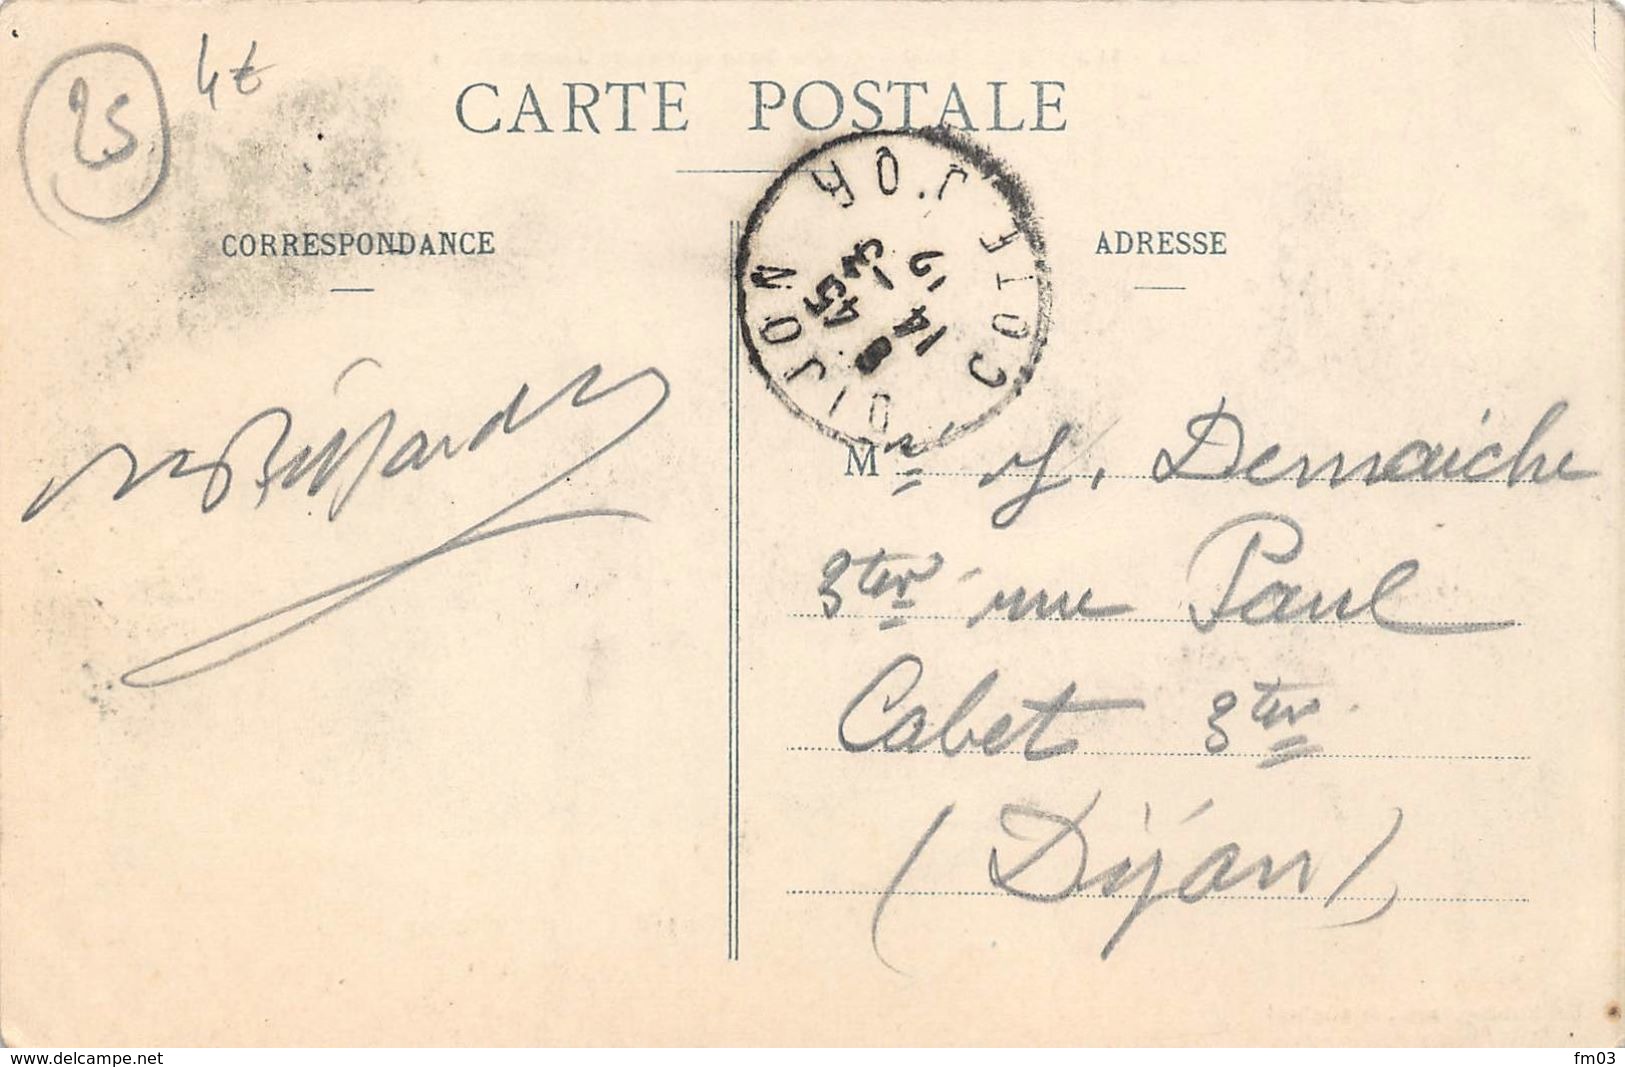 25
4€
CARTE POSTALE
CORRESPONDANCE
ADRESSE
DIJON
COTE D'OR
8 45
14 -3
Mr J. Demaiche
3ter rue Paul
Cabet 3ter
(Dijon)
www.delcampe.net
fm03